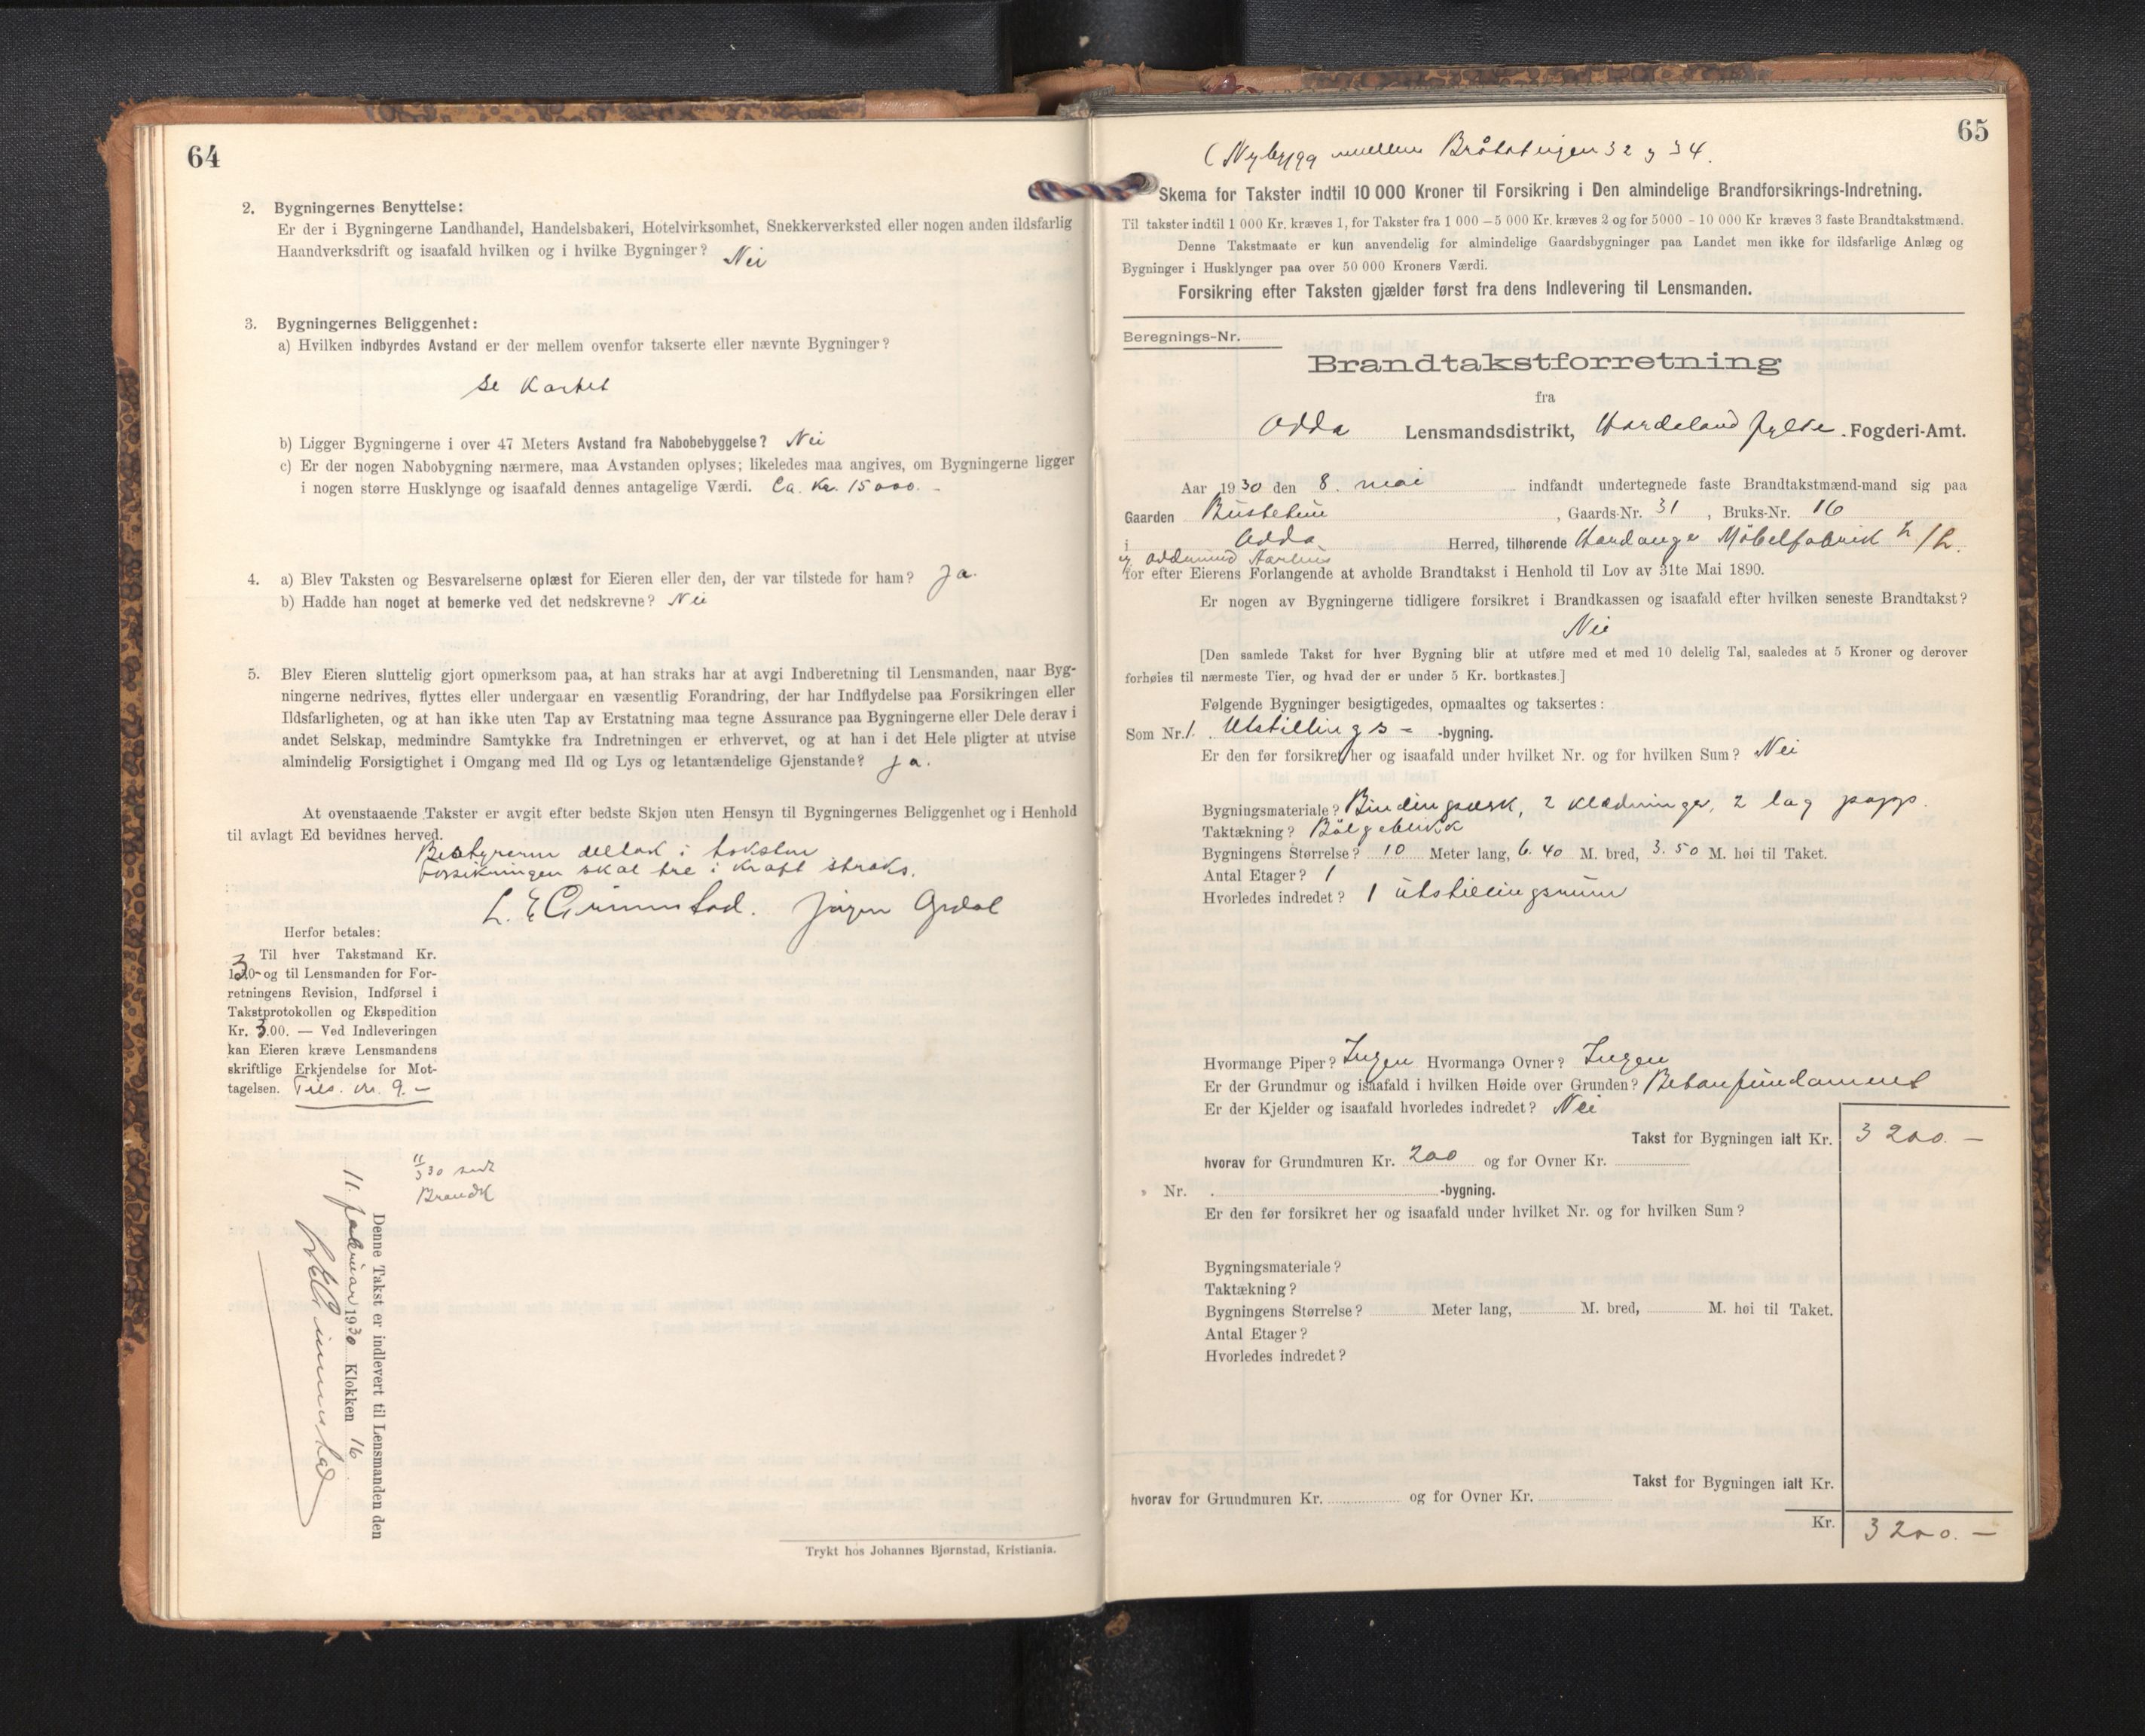 64
2. Bygningernes Benyttelse:
Er der i Bygningerne Landhandel, Handelsbakeri, Hotelvirksomhet, Snekkerverksted eller nogen anden ildsfarlig
Haandverksdrift og isaafald hvilken og i hvilke Bygninger? Nei
3. Bygningernes Beliggenhet:
a) Hvilken indbyrdes Avstand er der mellem ovenfor takserte eller nævnte Bygninger?
se kartet
b) Ligger Bygningerne i over 47 Meters Avstand fra Nabobebyggelse? Nei
c) Er der nogen Nabobygning nærmere, maa Avstanden oplyses; likeledes maa angives, om Bygningerne ligger
i nogen større Husklynge og isaafald dennes antagelige Værdi. Ca. Kr. 15000.-
4. a) Blev Taksten og Besvarelserne oplæst for Eieren eller den, der var tilstede for ham? Ja.
b) Hadde han noget at bemerke ved det nedskrevne? Nei
5. Blev Eieren sluttelig gjort opmerksom paa, at han straks har at avgi Indberetning til Lensmanden, naar Byg-
ningerne nedrives, flyttes eller undergaar en væsentlig Forandring, der har Indflydelse paa Forsikringen eller
Ildsfarligheten, og at han ikke uten Tap av Erstatning maa tegne Assurance paa Bygningerne eller Dele derav i
andet Selskap, medmindre Samtykke fra Indretningen er erhvervet, og at han i det Hele pligter at utvise
almindelig Forsigtighet i Omgang med Ild og Lys og letantændelige Gjenstande? Ja.
At ovenstaaende Takster er avgit efter bedste Skjøn uten Hensyn til Bygningernes Beliggenhet og i Henhold
til avlagt Ed bevidnes herved.
Bestyreren deltok i taksten
Forsikringen skal tre i kraft straks.
L. E Grimstad. Jørgen
Herfor betales:
Til hver Takstmand Kr.
3 og til Lensmanden for For-
retningens Revision, Indførsel i
Takstprotokollen og Ekspedition
Kr. 3.00. — Ved Indleveringen
kan Eieren kræve Lensmandens
skriftlige Erkjendelse for Mot-
tagelsen. Tils. kr. 9.-
11/2 30 sendt
Brandk
Denne Takst er indlevert til Lensmanden den
11. februar 1930 Klokken 16
L E Grimstad
Trykt hos Johannes Bjørnstad, Kristiania.
65
(Nybygg mellem Bråtateigen 32 og 34.
Skema for Takster indtil 10 000 Kroner til Forsikring i Den almindelige Brandforsikrings-Indretning.
Til takster indtil 1 000 Kr. kræves 1, for Takster fra 1 000 – 5 000 Kr. kræves 2 og for 5000 - 10 000 Kr kræves 3 faste Brandtakstmænd.
Denne Takstmaate er kun anvendelig for almindelige Gaardsbygninger paa Landet men ikke for ildsfarlige Anlæg og
Bygninger i Husklynger paa over 50 000 Kroners Værdi.
Forsikring efter Taksten gjælder først fra dens Indlevering til Lensmanden.
Beregnings-Nr.
Brandtakstforretning
fra
Odda Lensmandsdistrikt, Hordaland fylke. Fogderi-Amt.
Aar 1930 den 8. mai indfandt undertegnede faste Brandtakstmænd-mand sig paa
Gaarden Bustetun, Gaards-Nr. 31, Bruks-Nr. 16
i Odda Herred, tilhørende Hardanger Möbelfabrik A/L.
og Oddmund Aarhus
for efter Eierens Forlangende at avholde Brandtakst i Henhold til Lov av 31te Mai 1890.
Er nogen av Bygningerne tidligere forsikret i Brandkassen og isaafald efter hvilken seneste Brandtakst?
Nei
[Den samlede Takst for hver Bygning blir at utføre med et med 10 delelig Tal, saaledes at 5 Kroner og derover
forhøies til nærmeste Tier, og hvad der er under 5 Kr. bortkastes.]
Følgende Bygninger besigtigedes, opmaaltes og taksertes:
Som Nr. 1. Utstillings- -bygning.
Er den før forsikret her og isaafald under hvilket Nr. og for hvilken Sum? Nei
Bygningsmateriale? Bindingsverk, 2 klædninger, 2 lag papp.
Taktækning? Bölgeblikk
Bygningens Størrelse? 10 Meter lang, 6.40 M. bred, 3.50 M. høi til Taket.
Antal Etager? 1
Hvorledes indredet? 1 utstillingsrum
Hvormange Piper? Ingen Hvormange Ovner? Ingen
Er der Grundmur og isaafald i hvilken Høide over Grunden? Betonfundament
Er der Kjelder og isaafald hvorledes indredet? Nei
Takst for Bygningen ialt Kr. 3200.-
hvorav for Grundmuren Kr. 200 og for Ovner Kr.
" Nr. -bygning.
Er den før forsikret her og isaafald under hvilket Nr. og for hvilken Sum?
Bygningsmateriale?
Taktækning?
Bygningens Størrelse? Meter lang, M. bred, M. høi til Taket.
Antal Etager?
Hvorledes indredet?
Takst for Bygningen ialt Kr.
hvorav for Grundmuren Kr. og for Ovner Kr.
Kr. 3200.-